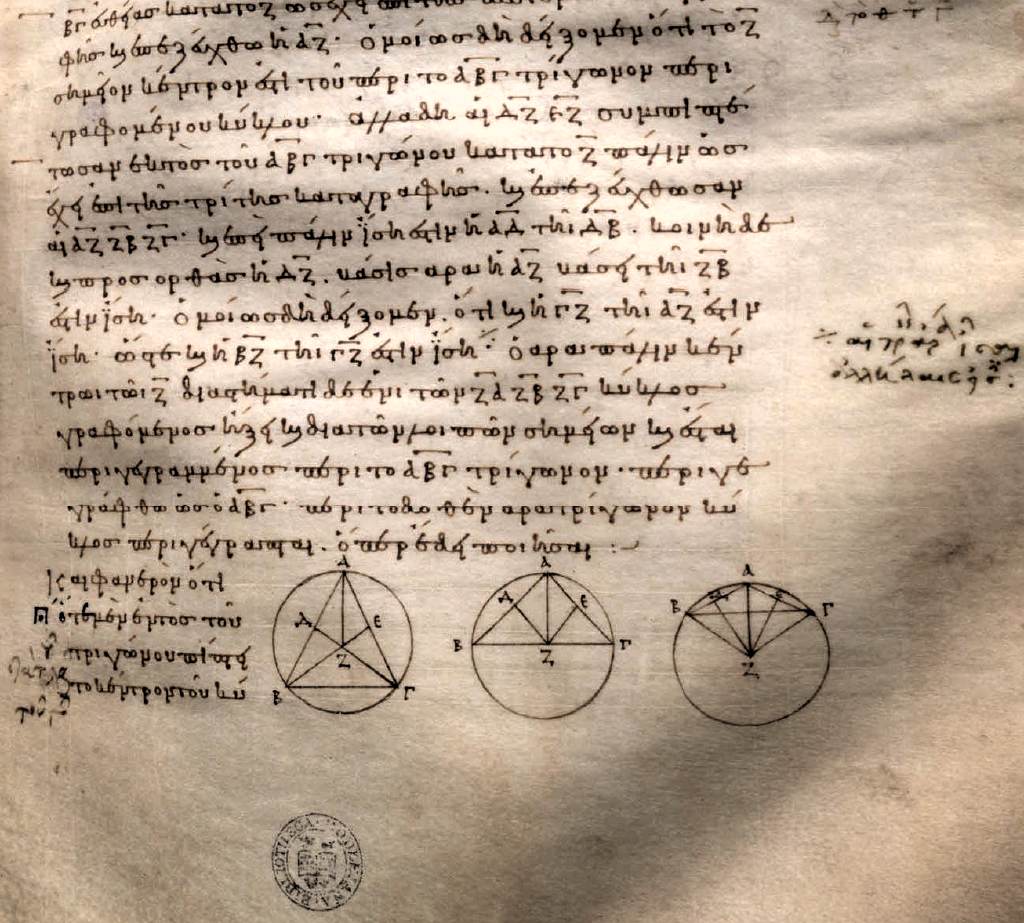 ΒΓ εὐθείας κατὰ τὸ Ζ ὡς ἔχει ἐπὶ τῆς
φῆς καὶ ἐπεζεύχθω ἡ ΑΖ· ὁμοίως δὴ δείξομεν ὅτι τὸ Ζ
σημεῖον κέντρον ἐστὶ τοῦ περὶ τὸ ΑΒΓ τρίγωνον περι
γραφομένου κύκλου· ἀλλὰ δὴ αἱ ΔΖ ΕΖ συμπιπτέ
τωσαν ἐκτὸς τοῦ ΑΒΓ τριγώνου κατὰ τὸ Ζ πάλιν ὡς
ἔχει ἐπὶ τῆς τρίτης καταγραφῆς· καὶ ἐπεζεύχθωσαν
αἱ ΑΖ ΖΒ ΖΓ· καὶ ἐπεὶ πάλιν ἴση ἐστὶν ἡ ΑΔ τῆι ΔΒ· κοινὴ δὲ
καὶ πρὸς ὀρθὰς ἡ ΔΖ· βάσις ἄρα ἡ ΑΖ βάσει τῆι ΖΒ
ἐστὶν ἴση· ὁμοίως δὴ δείξομεν ὅτι καὶ ἡ ΓΖ τῆι ΑΖ ἐστὶν
ἴση· ὥστε καὶ ἡ ΒΖ τῆι ΓΖ ἐστὶν ἴση· ὁ ἄρα πάλιν κέν
τρωι τῶι Ζ διαστήματι δὲ ἑνὶ τῶν ΖΑ ΖΒ ΖΓ κύκλος
γραφόμενος ἥξει καὶ διὰ τῶν λοιπῶν σημείων καὶ ἔσται
περιγεγραμμένος περὶ τὸ ΑΒΓ τρίγωνον· περιγε
γράφθω ὡς ὁ ΑΒΓ· περὶ τὸ δοθὲν ἄρα τρίγωνον κύ
κλος περιγέγραπται· ὅπερ ἔδει ποιῆσαι :~
Καὶ φανερὸν ὅτι
ὅτε μὲν ἐντὸς τοῦ
τριγώνου πίπτει
τὸ κέντρον τοῦ κύ
Α Δ Ε Ζ Β Γ
Α Δ Ε Β Ζ Γ
Α Δ Ε Β Γ Ζ
BIBLIOTHECA BODLEIANA